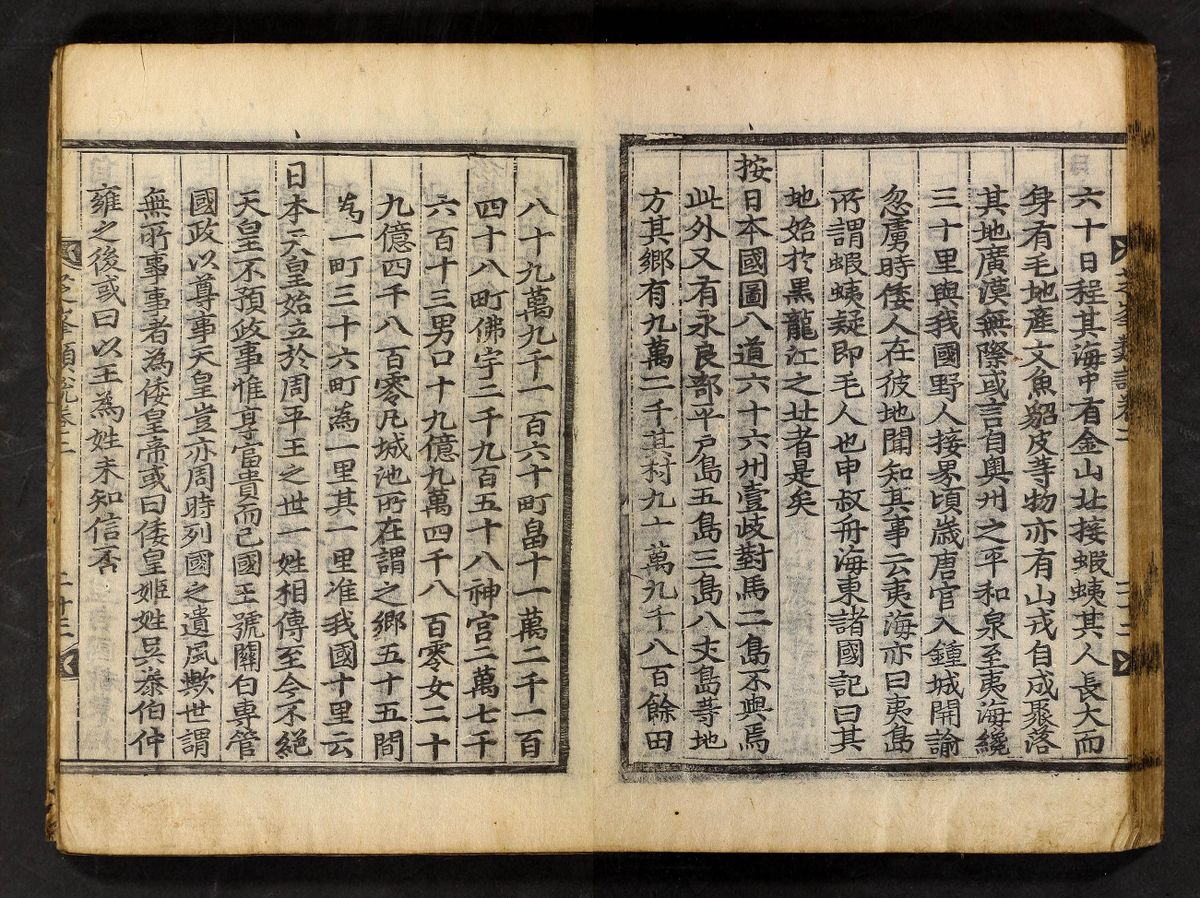 六十日程其海中有金山北接蝦蛦其人長大而
身有毛地産文魚貂皮等物亦有山戎自成聚落
其地廣漠無際或言自奧州之平和泉至夷海纔
三十里與我國野人接界頃歲唐官入鍾城開諭
忽虜時倭人在彼地聞知其事云夷海亦曰夷島
所謂蝦蛦疑即毛人也申叔舟海東諸國記曰其
地始於黑龍江之北者是矣
按日本國圖八道六十六州壹歧對馬二島不與焉
此外又有永良部平戶島五島三島八丈島等地
方其鄉有九萬二千其村九十萬九千八百餘田
八十九萬九千一百六十町畠十一萬二千一百
四十八町佛宇二千九百五十八神宮二萬七千
六百十三男口十九億九萬四千八百零女二十
九億四千八百零凡城池所在謂之鄉五十五間
為一町三十六町為一里其一里准我國十里云
日本天皇始立於周平王之世一姓相傳至今不絕
天皇不預政事惟享富貴而已國王號關白專管
國政以尊事天皇豈亦周時列國之遺風歟世謂
無所事事者為倭皇帝或曰倭皇姬姓吳泰伯仲
雍之後或曰以王為姓未知信否
芝峯類說卷二
二十三